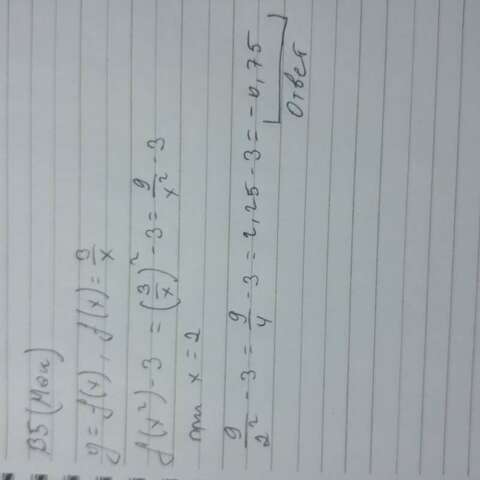 В5 (Мои)
y = f(x), f(x) = 3/x
f(x²) - 3 = (3/x)² - 3 = 9/x² - 3
при x = 2
9/2² - 3 = 9/4 - 3 = 2,25 - 3 = -0,75
Ответ